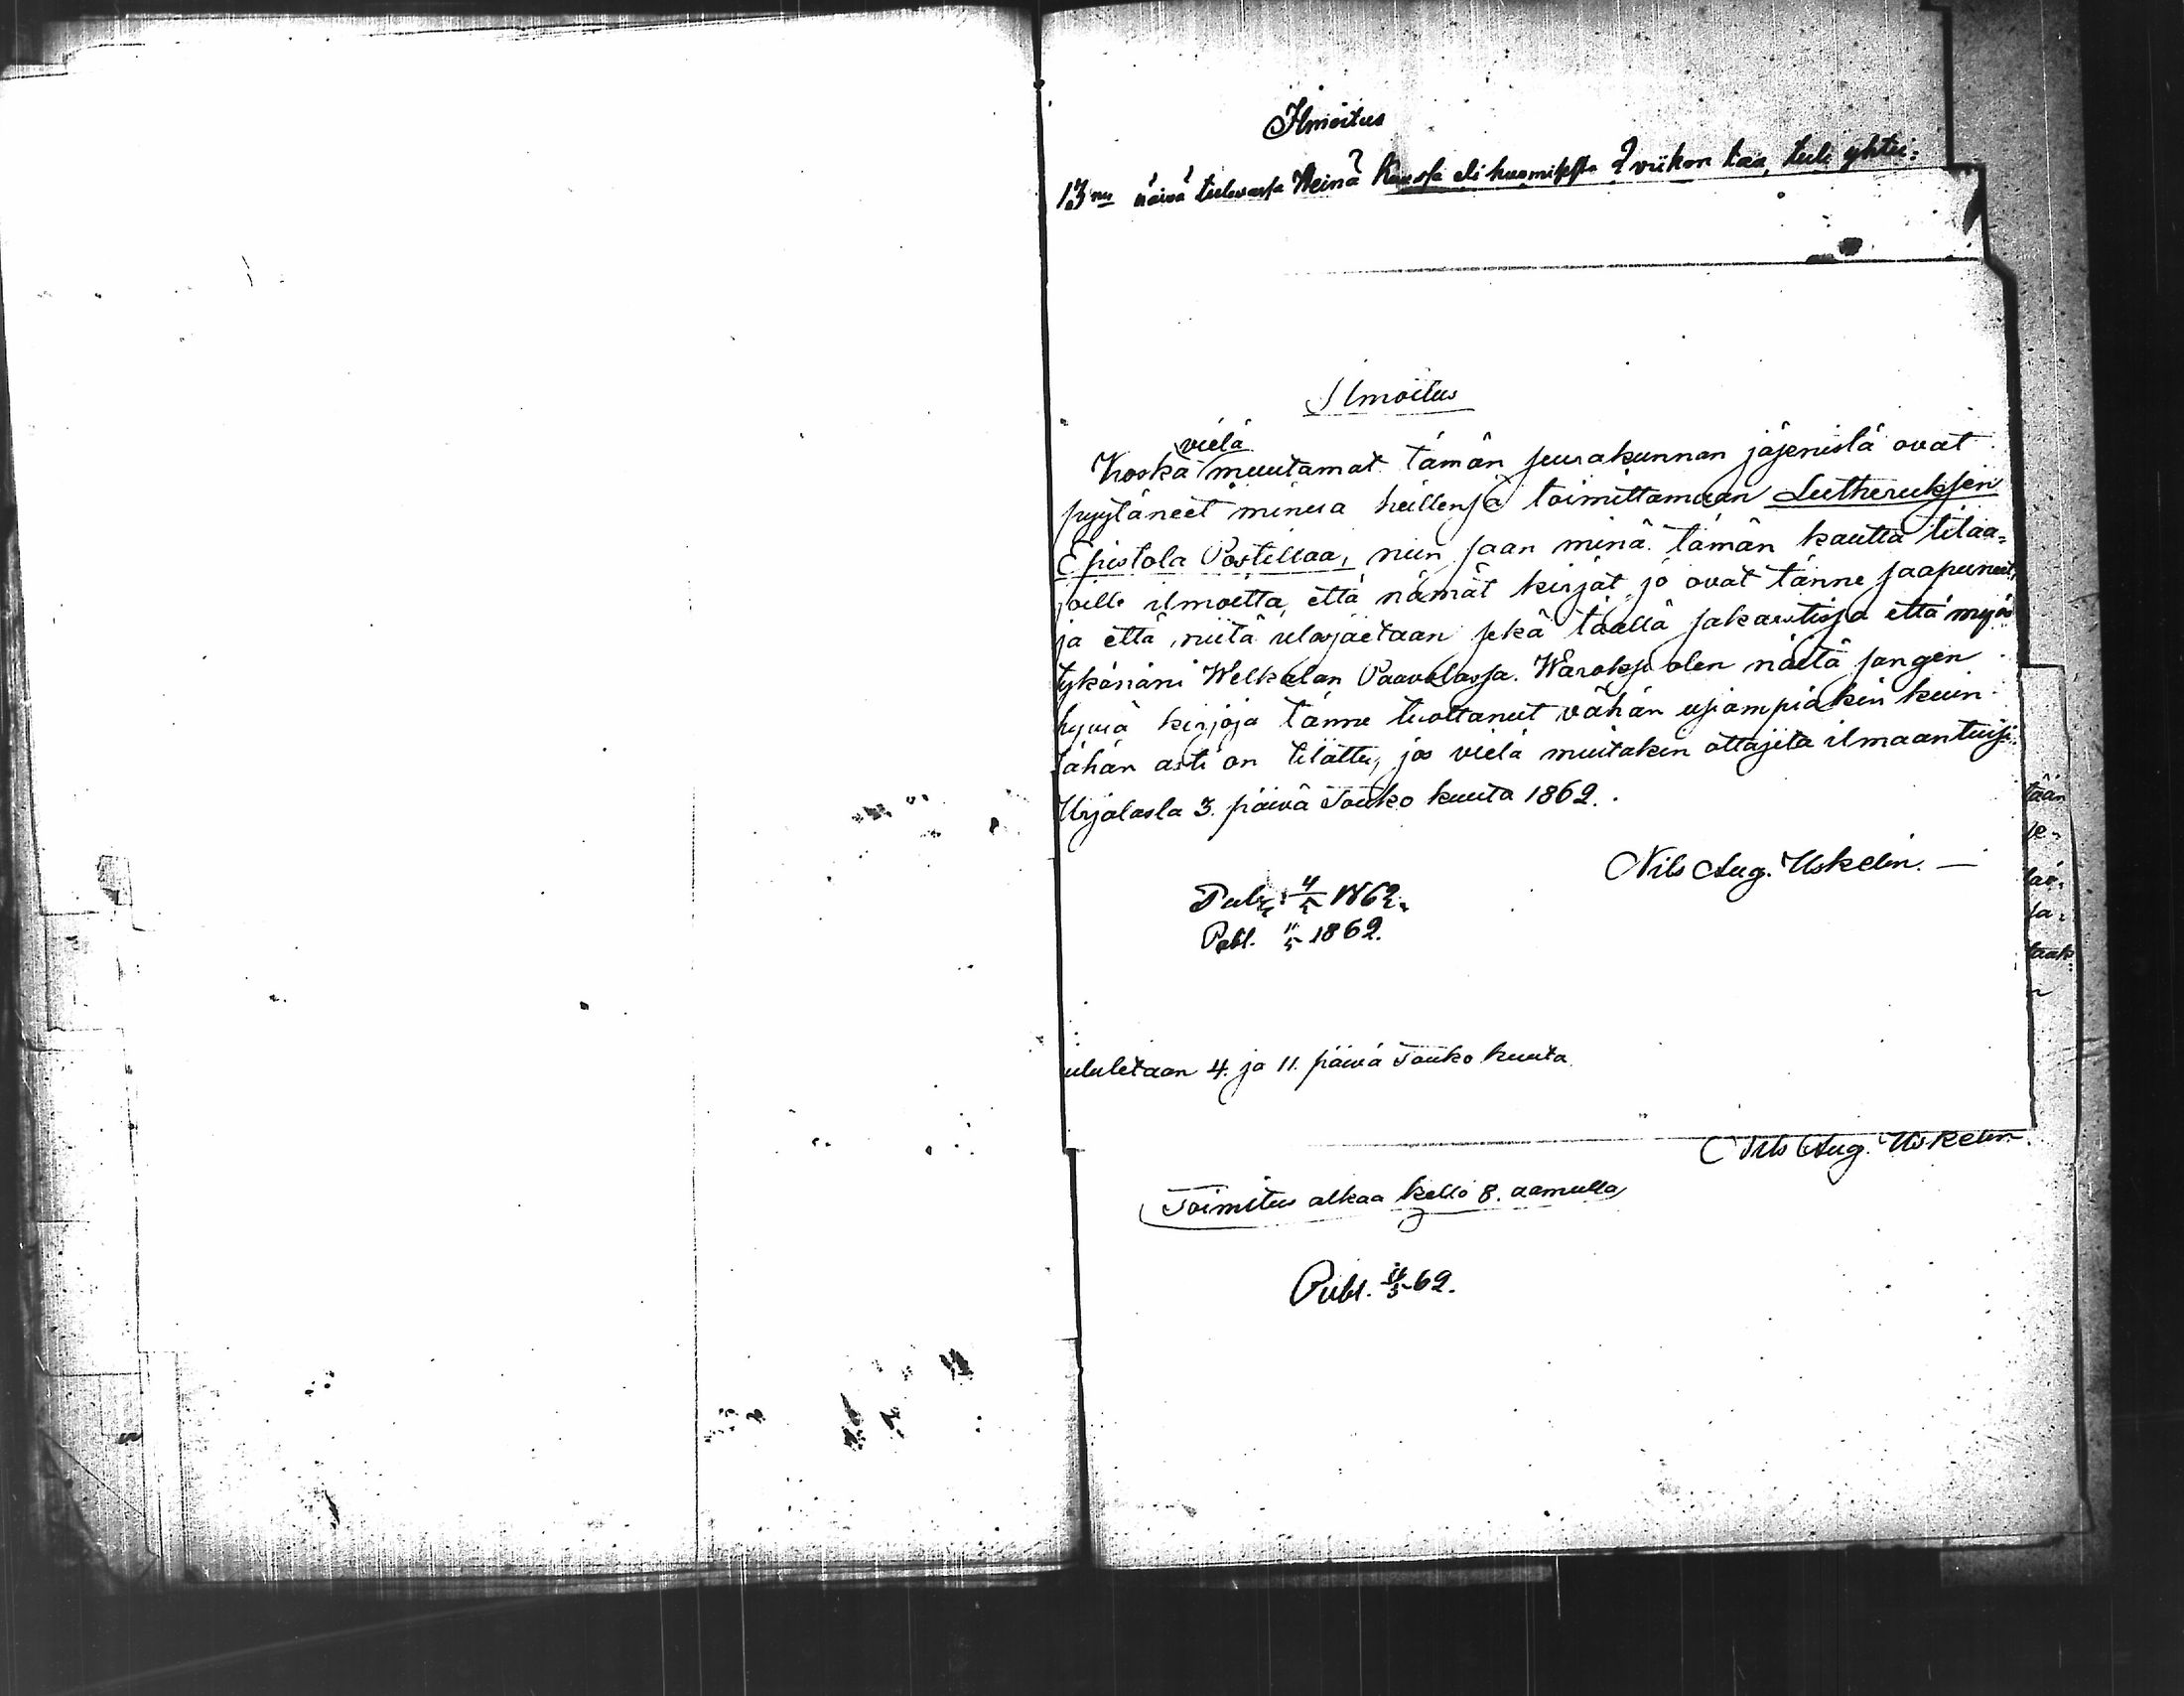 Ilmoitus
13ns päivä tulevassa Heinä Kuussa eli huomisesta 2 viikon taa, tuli yhtei=
Ilmoitus
vielä
Koska muutamat tämän seurakunnan jäsenistä ovat
pyytäneet minua heillensä toimittamaan Lutheruksen
Epistola Postillaa, niin saan minä tämän kautta tilaa=
joille ilmoitta, että nämät kirjat jo ovat tänne saapuneet,
ja että niitä ulosjaetaan sekä täällä sakaristissa että myös
tykönäni Welkalan Paavolassa. Waroksi olen näitä sangen
hyviä kirjoja tänne tuottanut vähän usiampiakin kuin
tähän asti on tilattu, jos vielä muitakin ottajita ilmaantuisi.
Urjalasta 3. päivä Touko kuuta 1862.
Nils Aug. Uskelin. —
Publ. 4/5 1862.
Publ. 11/5 1862.
uulutetaan 4. ja 11. päivä Touko kuuta
Nils Aug. Uskelin.
Toimitus alkaa kello 8. aamulla
Publ. 62.
tään
se-
sa-